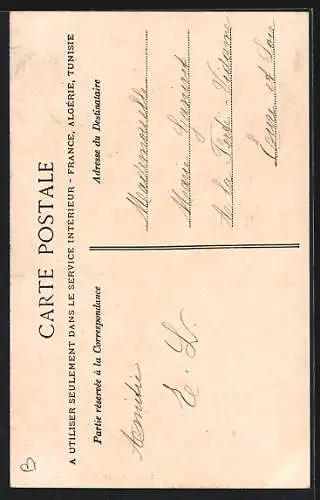 CARTE POSTALE
A UTILISER SEULEMENT DANS LE SERVICE INTÉRIEUR - FRANCE, ALGÉRIE, TUNISIE
Partie réservée à la Correspondance
Adresse du Destinataire
Amitié
E. L.
Mademoiselle
Marie
à la Ferté-Vidame
Eure et Loir
B